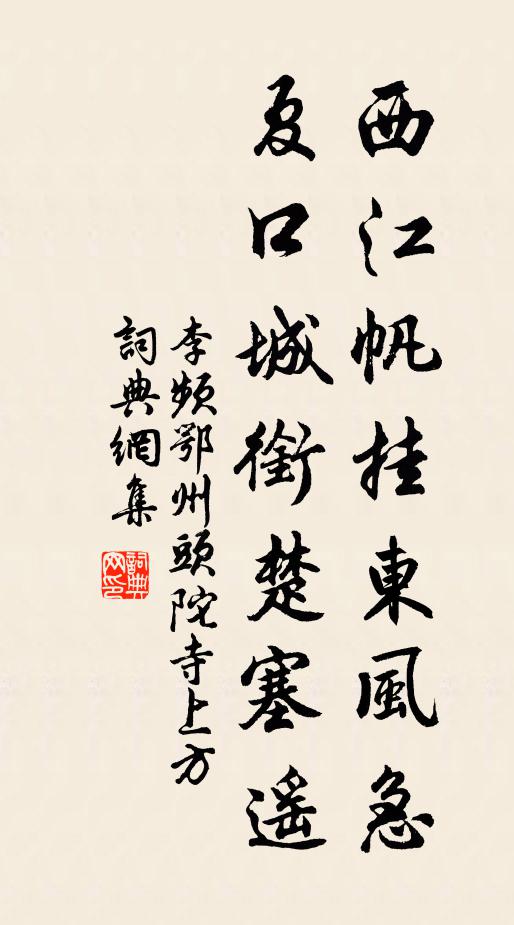 西江帆挂東風急
夏口城銜楚塞遥
李頻鄂州頭陀寺上方
詞典網集
詞典
网印